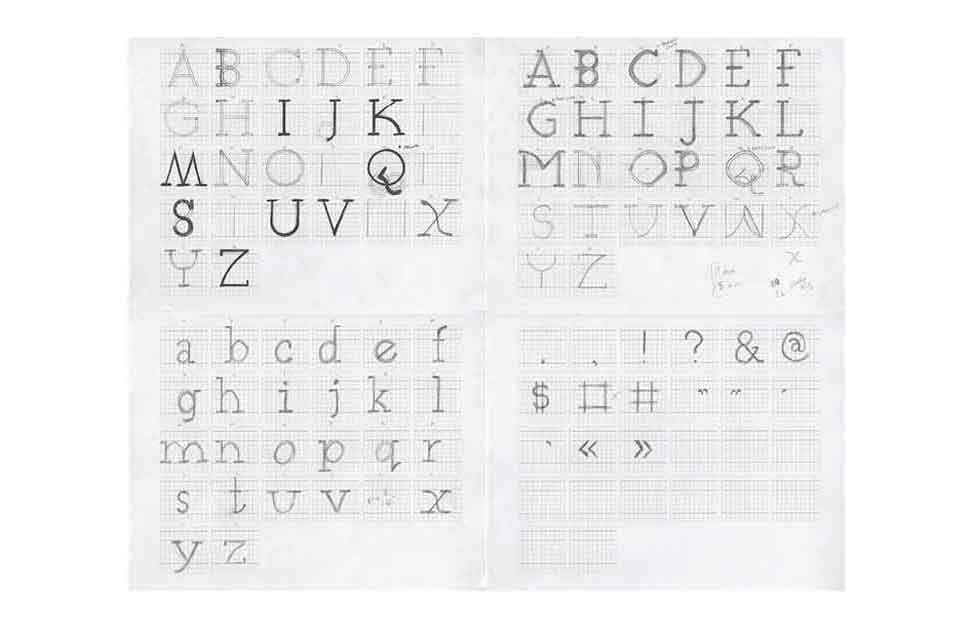 A B C D E F
G H I J K
M N O Q
S U V X
Y Z
A B C D E F
G H I J K L
M N O P Q R
S T U V W X
Y Z
x
a b c d e f
g h i j k l
m n o p q r
s t u v x
y z
. , ! ? & @
$ #
« »